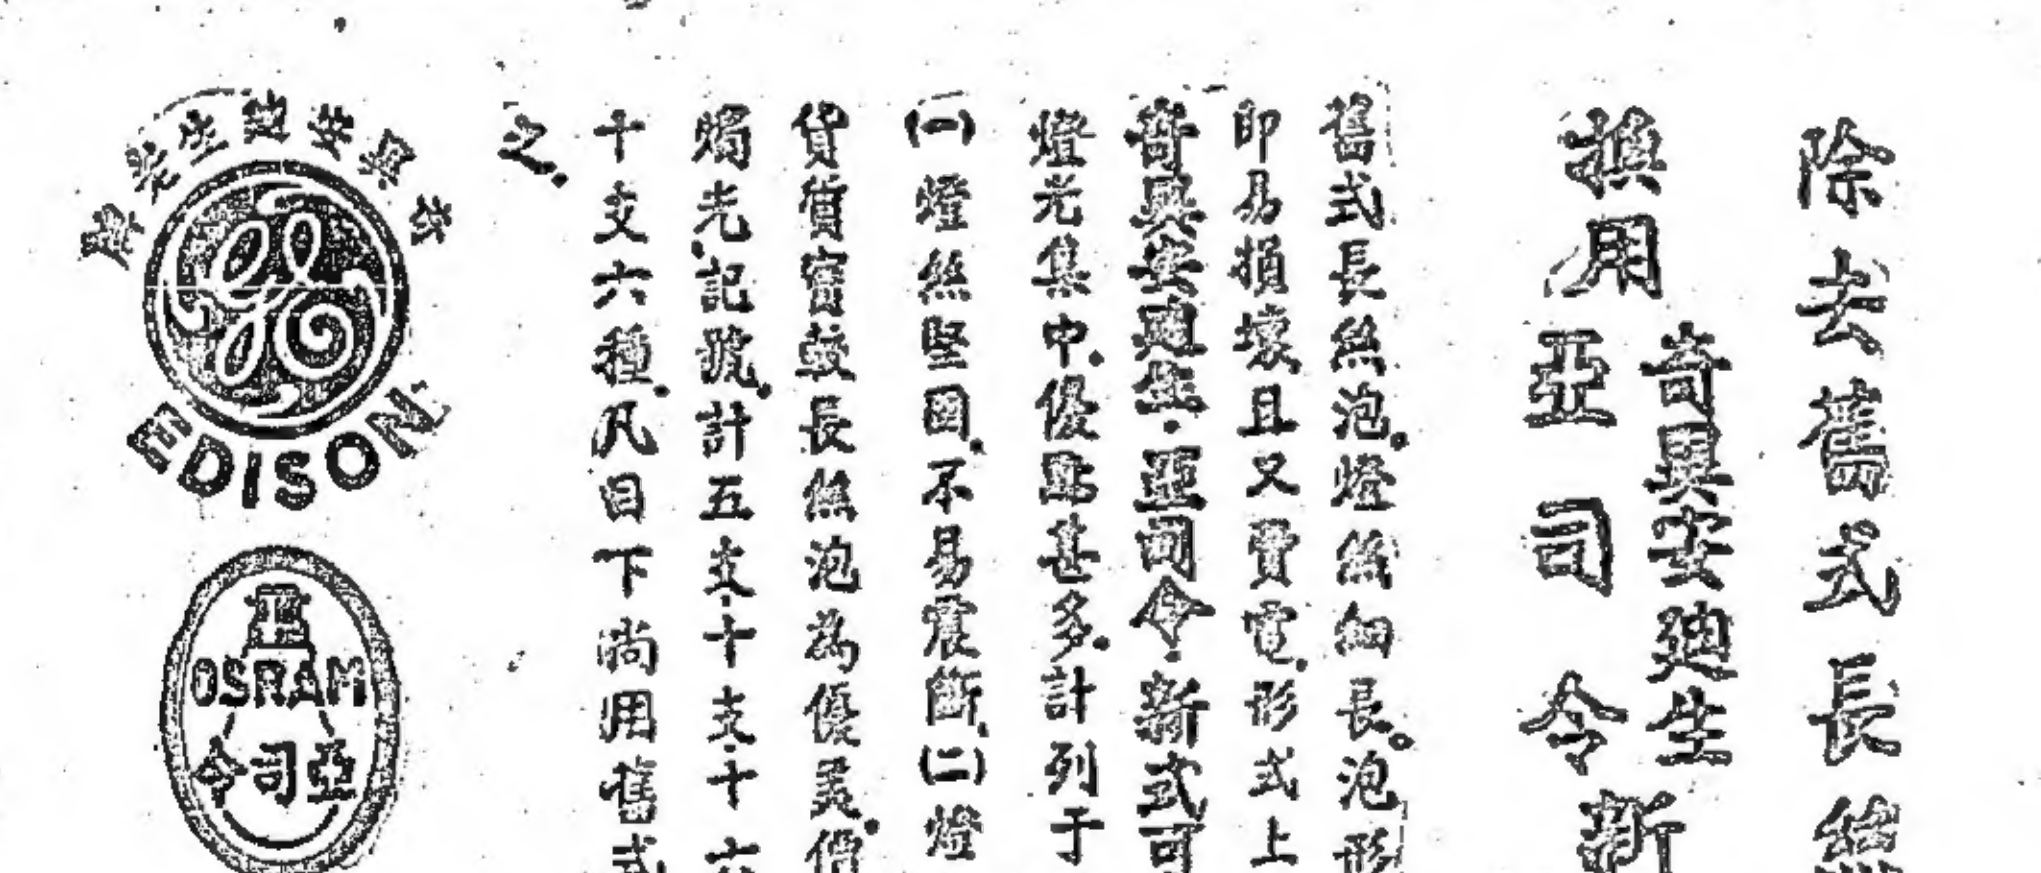 除去舊式長絲
換用
奇異安迪生
亞司令
新
舊式長絲泡。燈絲細長。泡形
即易損壞且又費電。形式上
奇異安迪生·亞司令·新式可
燈光集中。優點甚多。計列于
(一)燈絲堅固。不易震斷。(二)燈
貨價實較長絲泡為優美。價
燭光。記號。計五支·十支·十六
十支六種。凡目下尚用舊式
之。
奇異安迪生老牌
EDISON
亞
OSRAM
亞司令